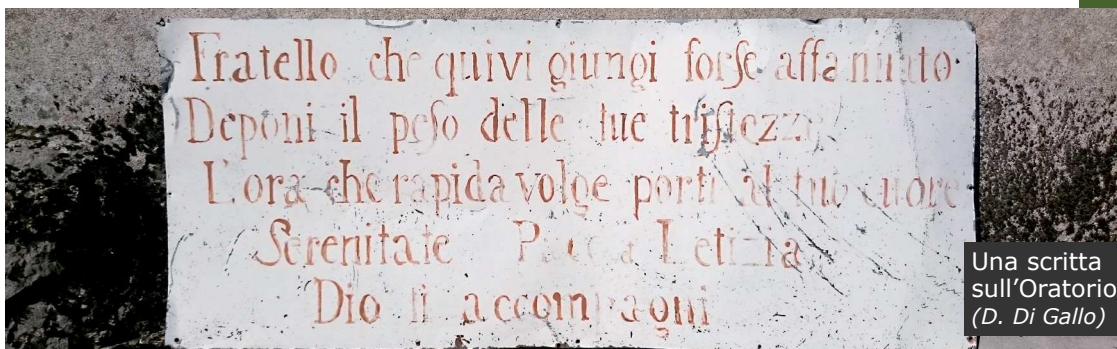 Fratello che quivi giungi forſe affannato
Deponi il peſo delle tue triſtezze
L'ora che rapida volge porti al tuo cuore
Serenitate Pace Letizia
Dio ti accompagni
Una scritta
sull'Oratorio
(D. Di Gallo)